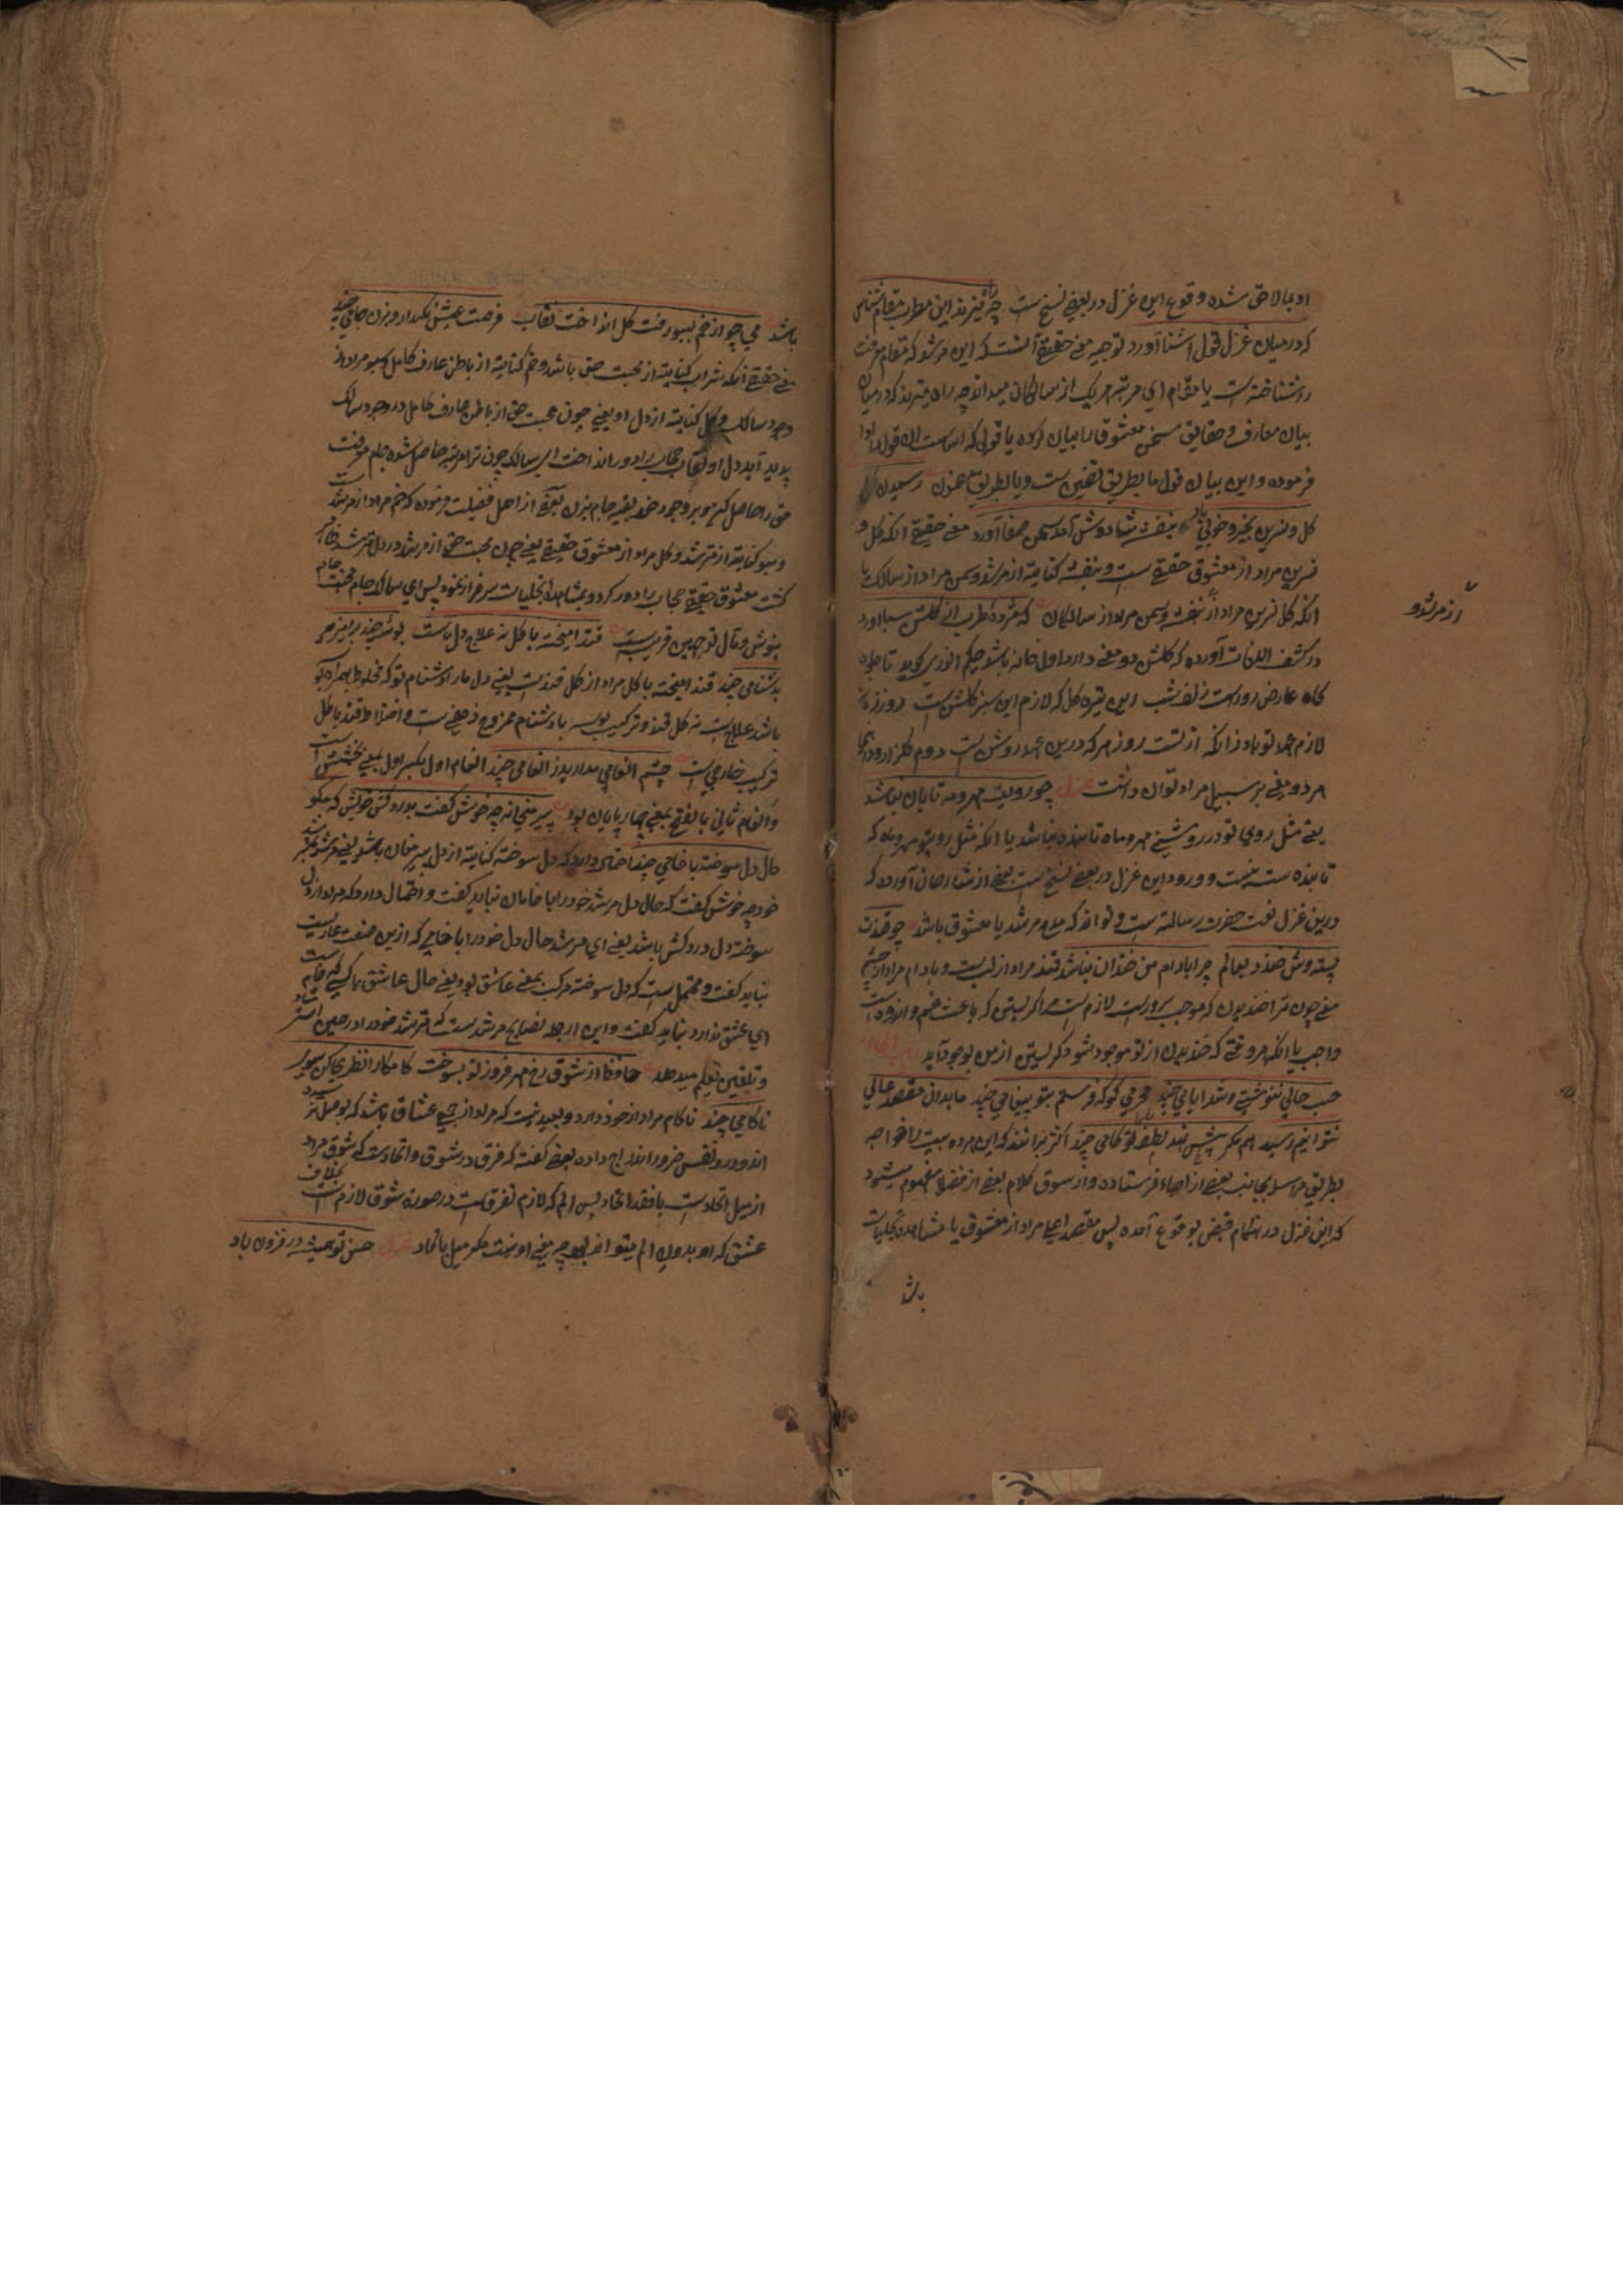 او بمالاحق شده وقوع این غزل در بعضے نسخ ست چه راه میزند این مطرب مقام شناس
که درمیان غزل قول آشنا آورد توجیه معنے حقیقة آنست که این مرشد که مقام معرفت
را شناخته ست یا مقام اي مرتبه هریک از سالکان میداند چه راه میزند که درمیان
بیان معارف و حقایق سخن معشوق را بیان کرده یا قولی که
فرموده و این بیان قول ما بطریق تضمین ست و یا بطریق رسیدن
گل و نسرین بخیر و خوبی باد بنفشه شاد و کش آمد سمن صفا آورد معنے حقیقة آنکه گل و
نسرین مراد از معشوق حقیقے ست و بنفشه کنایة از مرشد و سمن مراد از سالک یا
انکه گل نسرین مراد از بنفشه و سمن مراد از سالکان که مژده طرب از گلشن سبا آورد
از مرشد و
در کشف اللغات آورده که گلشن دو معنے دارد اول خانه باشد حکیم انوری گوید تا جلوه
گاه عارض روز است زلف شب این تیره گل که لازم این سبز گلشن ست روز
لازم عهد تو باد زانکه از تست روز هر که درین عهد روشن ست دوم گلزار و درینجا
هر دو معنے بر سبیل مراد توان داشت غزل چو رویت مهر و مه تابان نباشد
یعنے مثل روی تو در روشنے مهر و ماه تابنده نباشد یا انکه مثل روی تو مهر و ماه که
تابنده ست نیست و ورود این غزل در بعضے نسخ ست بعضے از شارحان آورده که
درین غزل نعت حضرت رسالت ست و تواند که مدح مرشد یا معشوق باشد چو قندت
پسته وش خندد بعالم چرا بادام من خندان نباشد قند مراد از لب ست و بادام مراد از چشم
معنے چون ترا خندیدن که موجب سرورست لازم ست مرا گریستن که باعث غم و اندوه است
واجب یا انکه هر وقتے که خندیدن از تو موجود شود گریستن از من بوجود آید
حسب حالي ننوشتے و شد ایامي چند محرمي کو که فرستم بتو پیغامي چند ما بدان مقصد عالي
نتوانیم رسید هم مگر پیش نهد لطف شما گامي چند اکثر برانند که این هر ده بیت را خواجه
بطریق مراسله بجانب بعضے از احباء فرستاده و از سوق کلام بعضے از فضلا مفهوم میشود
که این غزل در هنگام قبض بوقوع آمده پس مقصد اعلی مراد از معشوق یا مشاهده تجلیات
باشد
باشد مي چو از خم بسبو رفت گل انداخت نقاب فرصت عیش نگهدار و بزن جامي چند
معنے حقیقے آنکه شراب کنایة از محبت حق باشد و خم کنایة از باطن عارف کامل و سبو مراد از
وجود سالک و گل کنایة از دل او یعنے چون محبت حق از باطن عارف کامل در وجود سالک
پدید آید دل او نقاب حجاب را دور انداخت اي سالک چون ترا مرتبه حاصل شده جام معرفت
حق را حاصل کن بعضے از اهل فضیلت فرموده که خم مراد از مرشد
و سبو کنایة از مسترشد و گل مراد از معشوق حقیقے یعنے چون محبت حق از مرشد در دل مسترشد
گشت معشوق حقیقے حجاب را دور کرد و بمشاهده تجلیات سرفراز نمود پس اي سالک جام محبت
بنوش و مآل توجیهین قریب ست قند آمیخته با گل نه علاج دل ماست بوسهٔ چند برآمیز
بدشنامي چند قند آمیخته با گل مراد از گلقند ست یعنے دل ما را دشنام تو که مخلوط بهمراه بوسه
باشد علاج ست نه گلقند و ترکیب بوسه با دشنام ممزوج ذهنے ست و اختلاط قند با گل
ترکیب خارجي ست چشم انعامي مدارید ز انعامي چند انعام اول بکسر اول بمعنے بخشش ست
و انعام ثاني بالفتح بمعنے چهار پایان بود پیر میخانه چه خوش گفت بدردکش خویش که مگو
حال دل سوخته با خامي چند احتمال دارد که دل سوخته کنایة از دل پیر مغان باشد یعنے مرشد
خود چه خوش گفت که حال دل مرشد خود را با خامان نباید گفت و احتمال دارد که مراد از دل
سوخته دل دردکش باشد یعنے اي مرشد حال دل خود را با خامي که ازین صنعت عاریست
نباید گفت و محتمل ست که دل سوخته مرکب بمعنے عاشق بود یعنے حال عاشق با کسے که خام ست
اي عشق ندارد نباید گفت و این از جمله نصایح مرشد ست که مسترشد خود را در حین
و تلقین تعلیم میدهد حافظ از شوق رخ مهر فروز تو بسوخت کامگارا نظري کن سوي
ناکامي چند ناکام مراد از خود دارد و بعید نیست که مراد از جمیع عشاق باشد که بوصل
اند و درو نفس خود را اندراج داده بعضے گفته که فرق در شوق و اتحاد ست که شوق مراد
از میل اتحاد ست با فقد اتحاد پس الم که لازم تفرق ست در صورة شوق لازم ست بخلاف
عشق که او بدون الم میتواند بود چه معنے او نیست مگر میل باتحاد غزل حسن تو همیشه در فزون باد